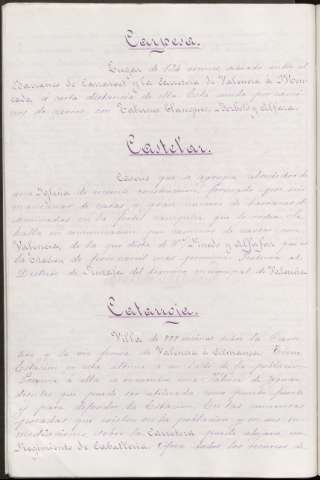 Carpesa.
Lugar de 124 vecinos situado entre el
Barranco de Carraixet y la Carretera de Valencia á Mon-
cada, á corta distancia de ella. Está unido por cami-
nos de carros, con Tabernes Blanques, Borbotó y Alfara.
Castelar.
Caserío que se agrupa alrededor de
una Iglesia de reciente construcción, formado por seis
manzanas de casas y gran número de barracas di-
seminadas en la fértil campiña que le rodea. Se
halla en comunicación por caminos de carros con
Valencia, de la que dista 4 Km, Pinedo y Alfafar que es
la Estación de ferro-carril más próxima. Pertenece al
Distrito de Ruzafa del término municipal de Valencia.
Catarroja.
Villa de 999 vecinos sobre la Carre-
tera y la vía férrea de Valencia á Almansa. Tiene
Estación en esta última á un lado de la población.
Próxima á ella se encuentra una Fábrica de
que puede ser utilizada como puesto fuerte
y para defender la Estación. En las numerosas
posadas que existen en la población y en sus in-
mediaciones sobre la Carretera puede alojarse un
Regimiento de Caballería. Ofrece todos los recursos de